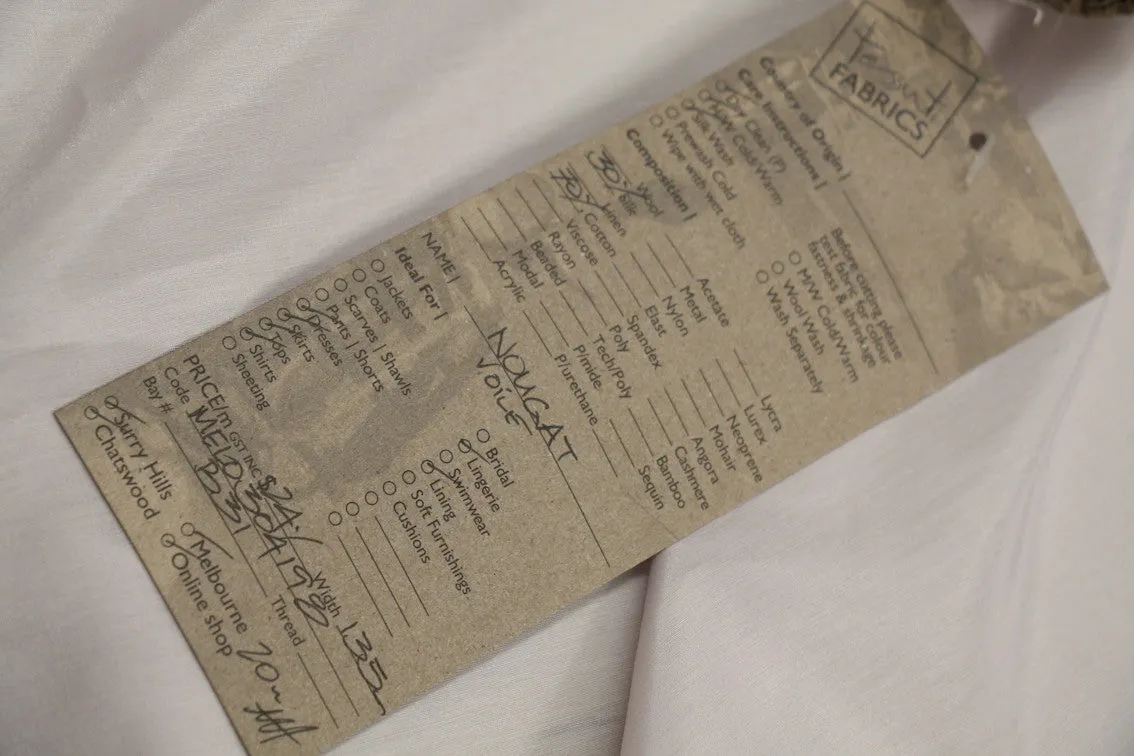 Tessuti
FABRICS
Country of Origin |
Care Instructions |
Dry Clean (P)
M/W Cold/Warm
Silk Wash
Prewash Cold
Wipe with wet cloth
Before cutting please
test fabric for colour
fastness & shrinkage
M/W Cold/Warm
Wool Wash
Wash Separately
Composition |
Wool
30% Silk
Linen
70% Cotton
Viscose
Rayon
Beaded
Modal
Acrylic
Acetate
Metal
Nylon
Elast
Spandex
Poly
Tech/Poly
P/mide
P/urethane
Lycra
Lurex
Neoprene
Mohair
Angora
Cashmere
Bamboo
Sequin
NAME | NOUGAT
VOILE
Ideal For |
Jackets
Coats
Scarves | Shawls
Pants | Shorts
Dresses
Skirts
Tops
Shirts
Sheeting
Bridal
Lingerie
Swimwear
Lining
Soft Furnishings
Cushions
PRICE/m GST INC $24.- Width 135
Code MELD304198
Bay # B31 Thread
Surry Hills
Chatswood
Melbourne 20m
Online shop